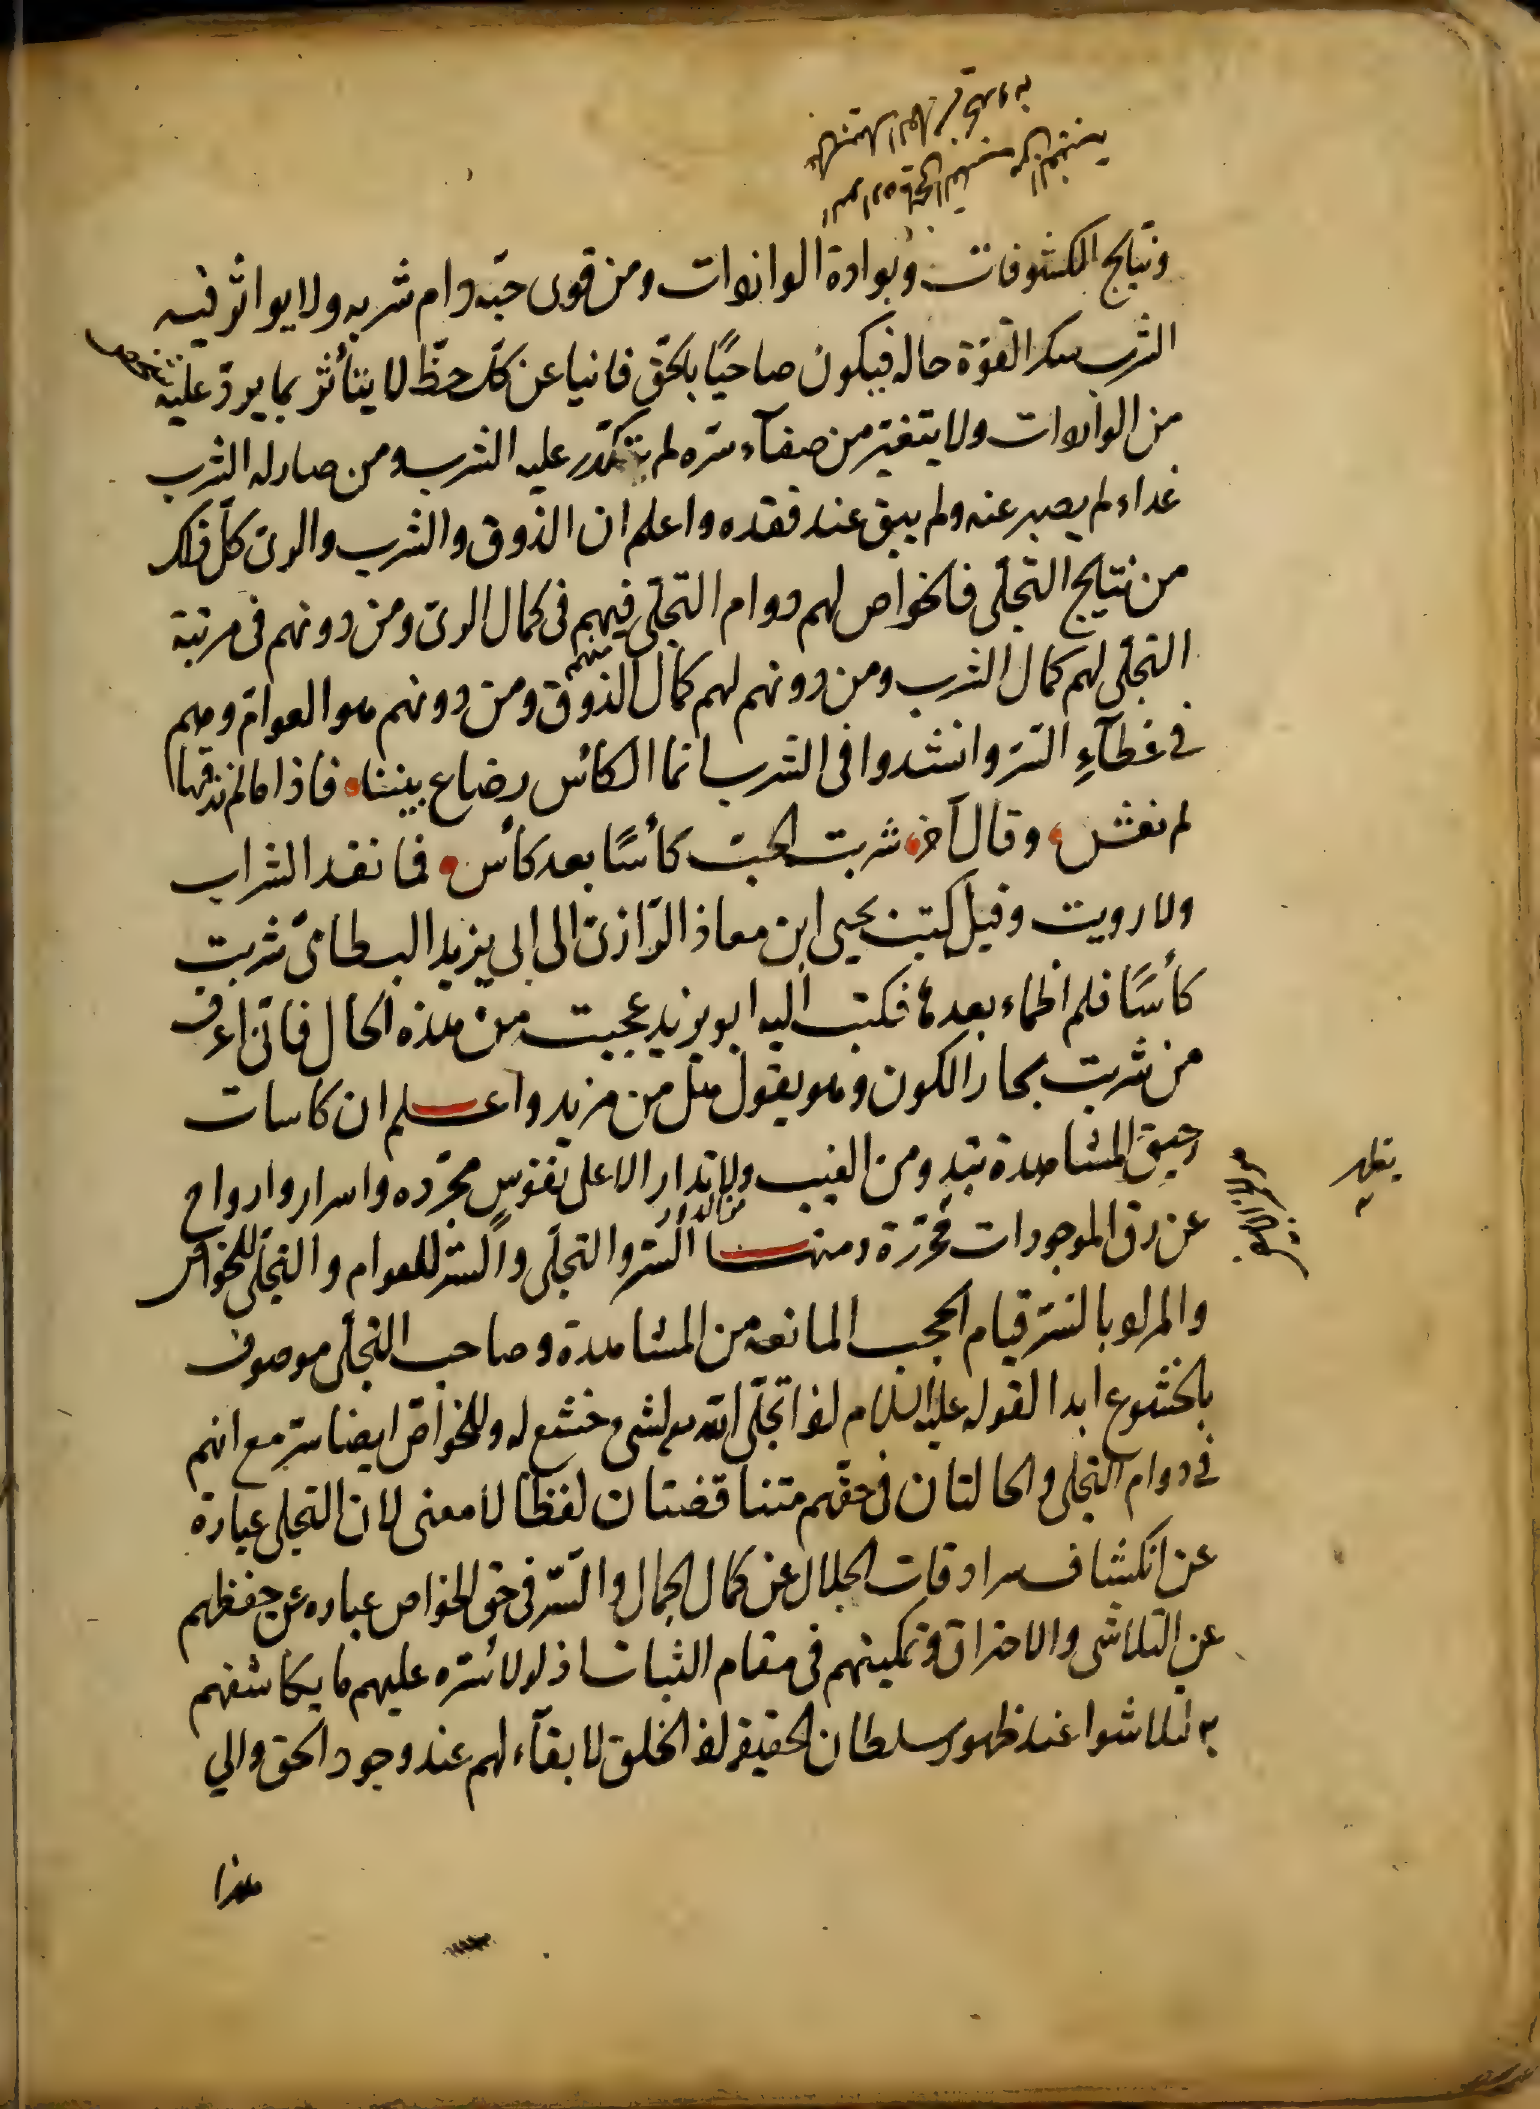 ونتايج الكشوفات وبوادة الواردات ومن قوى حبّه دام شربه ولا يواثر فيه
الشرب سكر القوّة حاله فيكون صاحيًا بالحقّ فانيا عن كلّ حظّ لا يتأثر بما يردّ عليه
من الواردات ولا يتغيّر من صفآء سرّه لم يتكدّر عليه الشرب ومن صار له الشرب
غداء لم يصبر عنه ولم يبق عند فقده واعلم ان الذوق والشرب والرىّ كلّ ذلك
من نتايج التجلّى فالخواص لهم دوام التجلّى فيهم فى كمال الرىّ ومن دونهم فى مرتبة
التجلّى لهم كمال الشرب ومن دونهم لهم كمال الذوق ومن دونهم هو العوامّ وهم
فى غطآءِ السّتر وانشدوا فى الشرب انما الكأس رضاع بيننا فاذا ما لم نذقها
لم نعش وقال آخر شربت الحبّ كأسًا بعد كأس فما نفد الشراب
ولا رويت وقيل كتب يحيى ابن معاذ الرّازىّ الى ابى يزيد البسطامىّ شربت
كأسًا فلم اظماء بعدها فكتب اليه ابو يزيد عجبت من هذه الحال فانّى اعرف
من شربت بحار الكون وهو يقول هل من مزيد واعلم ان كاسات
رحيق المشاهدة تبدو من الغيب ولا تدار الا على نفوسٍ مجرّده واسرار وارواح
عن رق الموجودات محرّرة ومنها السّتر والتجلّى والسّتر للعوام والتجلّى للخواص
والمراد بالستر قيام الحجب المانعه من المشاهدة وصاحب التجلّى موصوف
بالخشوع ابدا لقوله عليه السلام اذا تجلّى الله لشىء خشع له وللخواصّ ايضا ستر مع انهم
فى دوام التجلى والحالتان فى حقّهم متناقضتان لفظا لا معنى لان التجلى عبارة
عن انكشاف سرادقات الجلال عن كمال الجمال والسّتر فى حق الخواص عباره عن حفظهم
عن التلاشى والاحتراق وتمكينهم فى مقام الثبات اذ لولا ستره عليهم ما يكاشفهم
به لتلاشوا عند ظهور سلطان الحقيقه اذ الخلق لا بقآء لهم عند وجود الحق والى
هذا